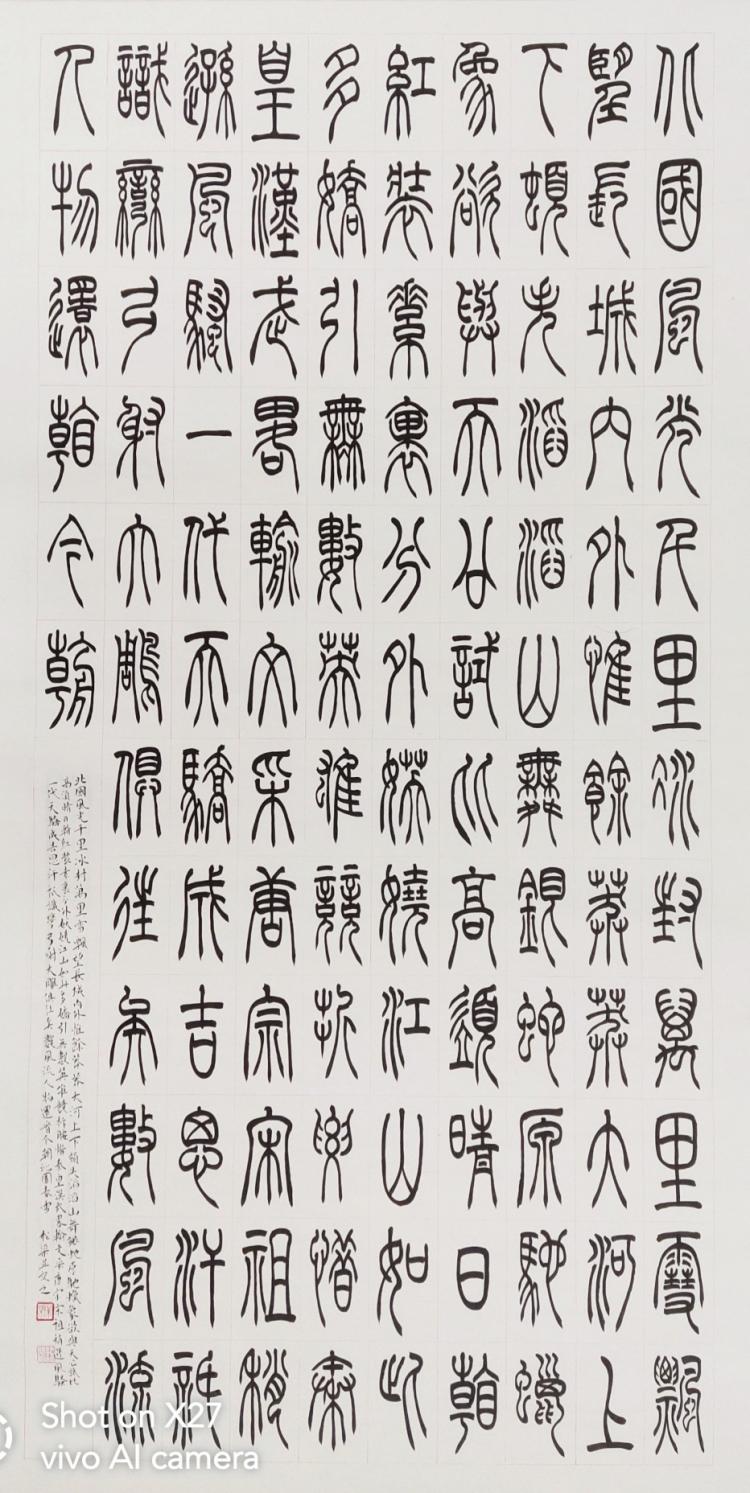 北國風光千里冰封萬里雪飄
望長城內外惟餘莽莽大河上
下頓失滔滔山舞銀蛇原馳蠟
象欲與天公試比高須晴日看
紅裝素裹分外妖嬈江山如此
多嬌引無數英雄競折腰惜秦
皇漢武略輸文采唐宗宋祖稍
遜風騷一代天驕成吉思汗祇
識彎弓射大鵰俱往矣數風流
人物還看今朝
北國風光千里冰封萬里雪飄望長城內外惟餘莽莽大河上下頓失滔滔山舞銀蛇原馳蠟象欲與天公試比
高須晴日看紅裝素裹分外妖嬈江山如此多嬌引無數英雄競折腰惜秦皇漢武略輸文采唐宗宋祖稍遜風騷
一代天驕成吉思汗祇識彎弓射大雕俱往矣數風流人物還看今朝沁園春雪
Shot on X27
vivo AI camera